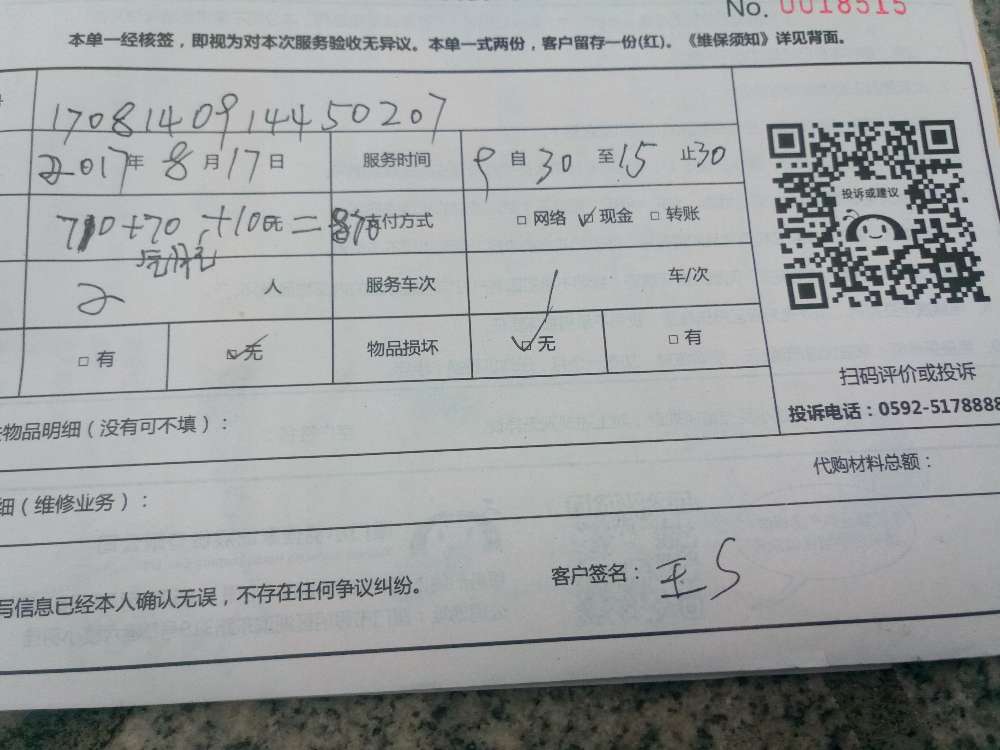 No. 0018515
本单一经核签，即视为对本次服务验收无异议。本单一式两份，客户留存一份(红)。《维保须知》详见背面。
17081409144450207
2017年 8月17日 服务时间 9自30至15止30
710+70+100元=870 支付方式 □网络 ☑现金 □转账
投诉或建议
2 人 服务车次 / 车/次
□有 ☑无 物品损坏 ☑无 □有
扫码评价或投诉
物品明细（没有可不填）： 投诉电话：0592-5178888
代购材料总额：
细（维修业务）：
写信息已经本人确认无误，不存在任何争议纠纷。 客户签名：王S